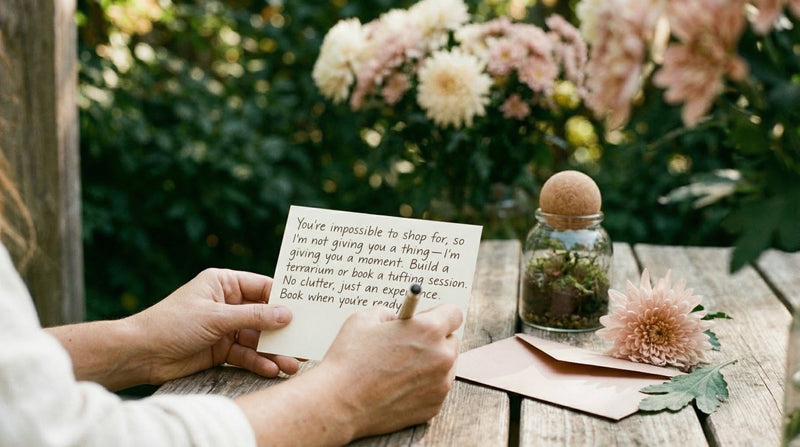 You're impossible to shop for, so
I'm not giving you a thing—I'm
giving you a moment. Build a
terrarium or book a tufting session.
No clutter, just an experience.
Book when you're ready